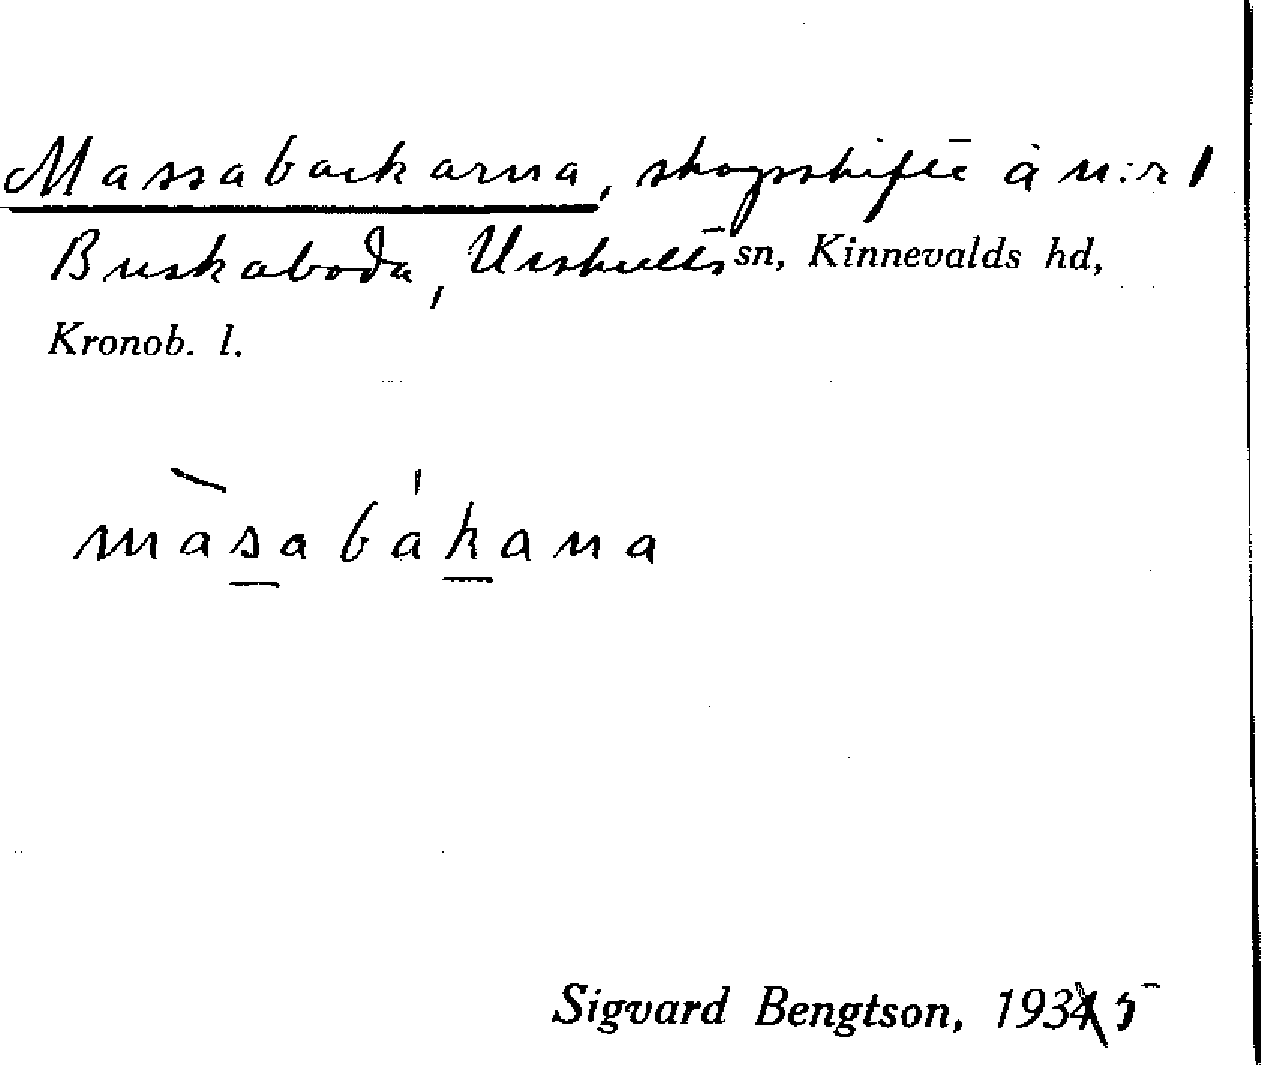 Massabackarna, skogsskifte å n:r 1
Buskaboda, Urshults sn, Kinnevalds hd,
Kronob. l.
màsabákana
Sigvard Bengtson, 1935